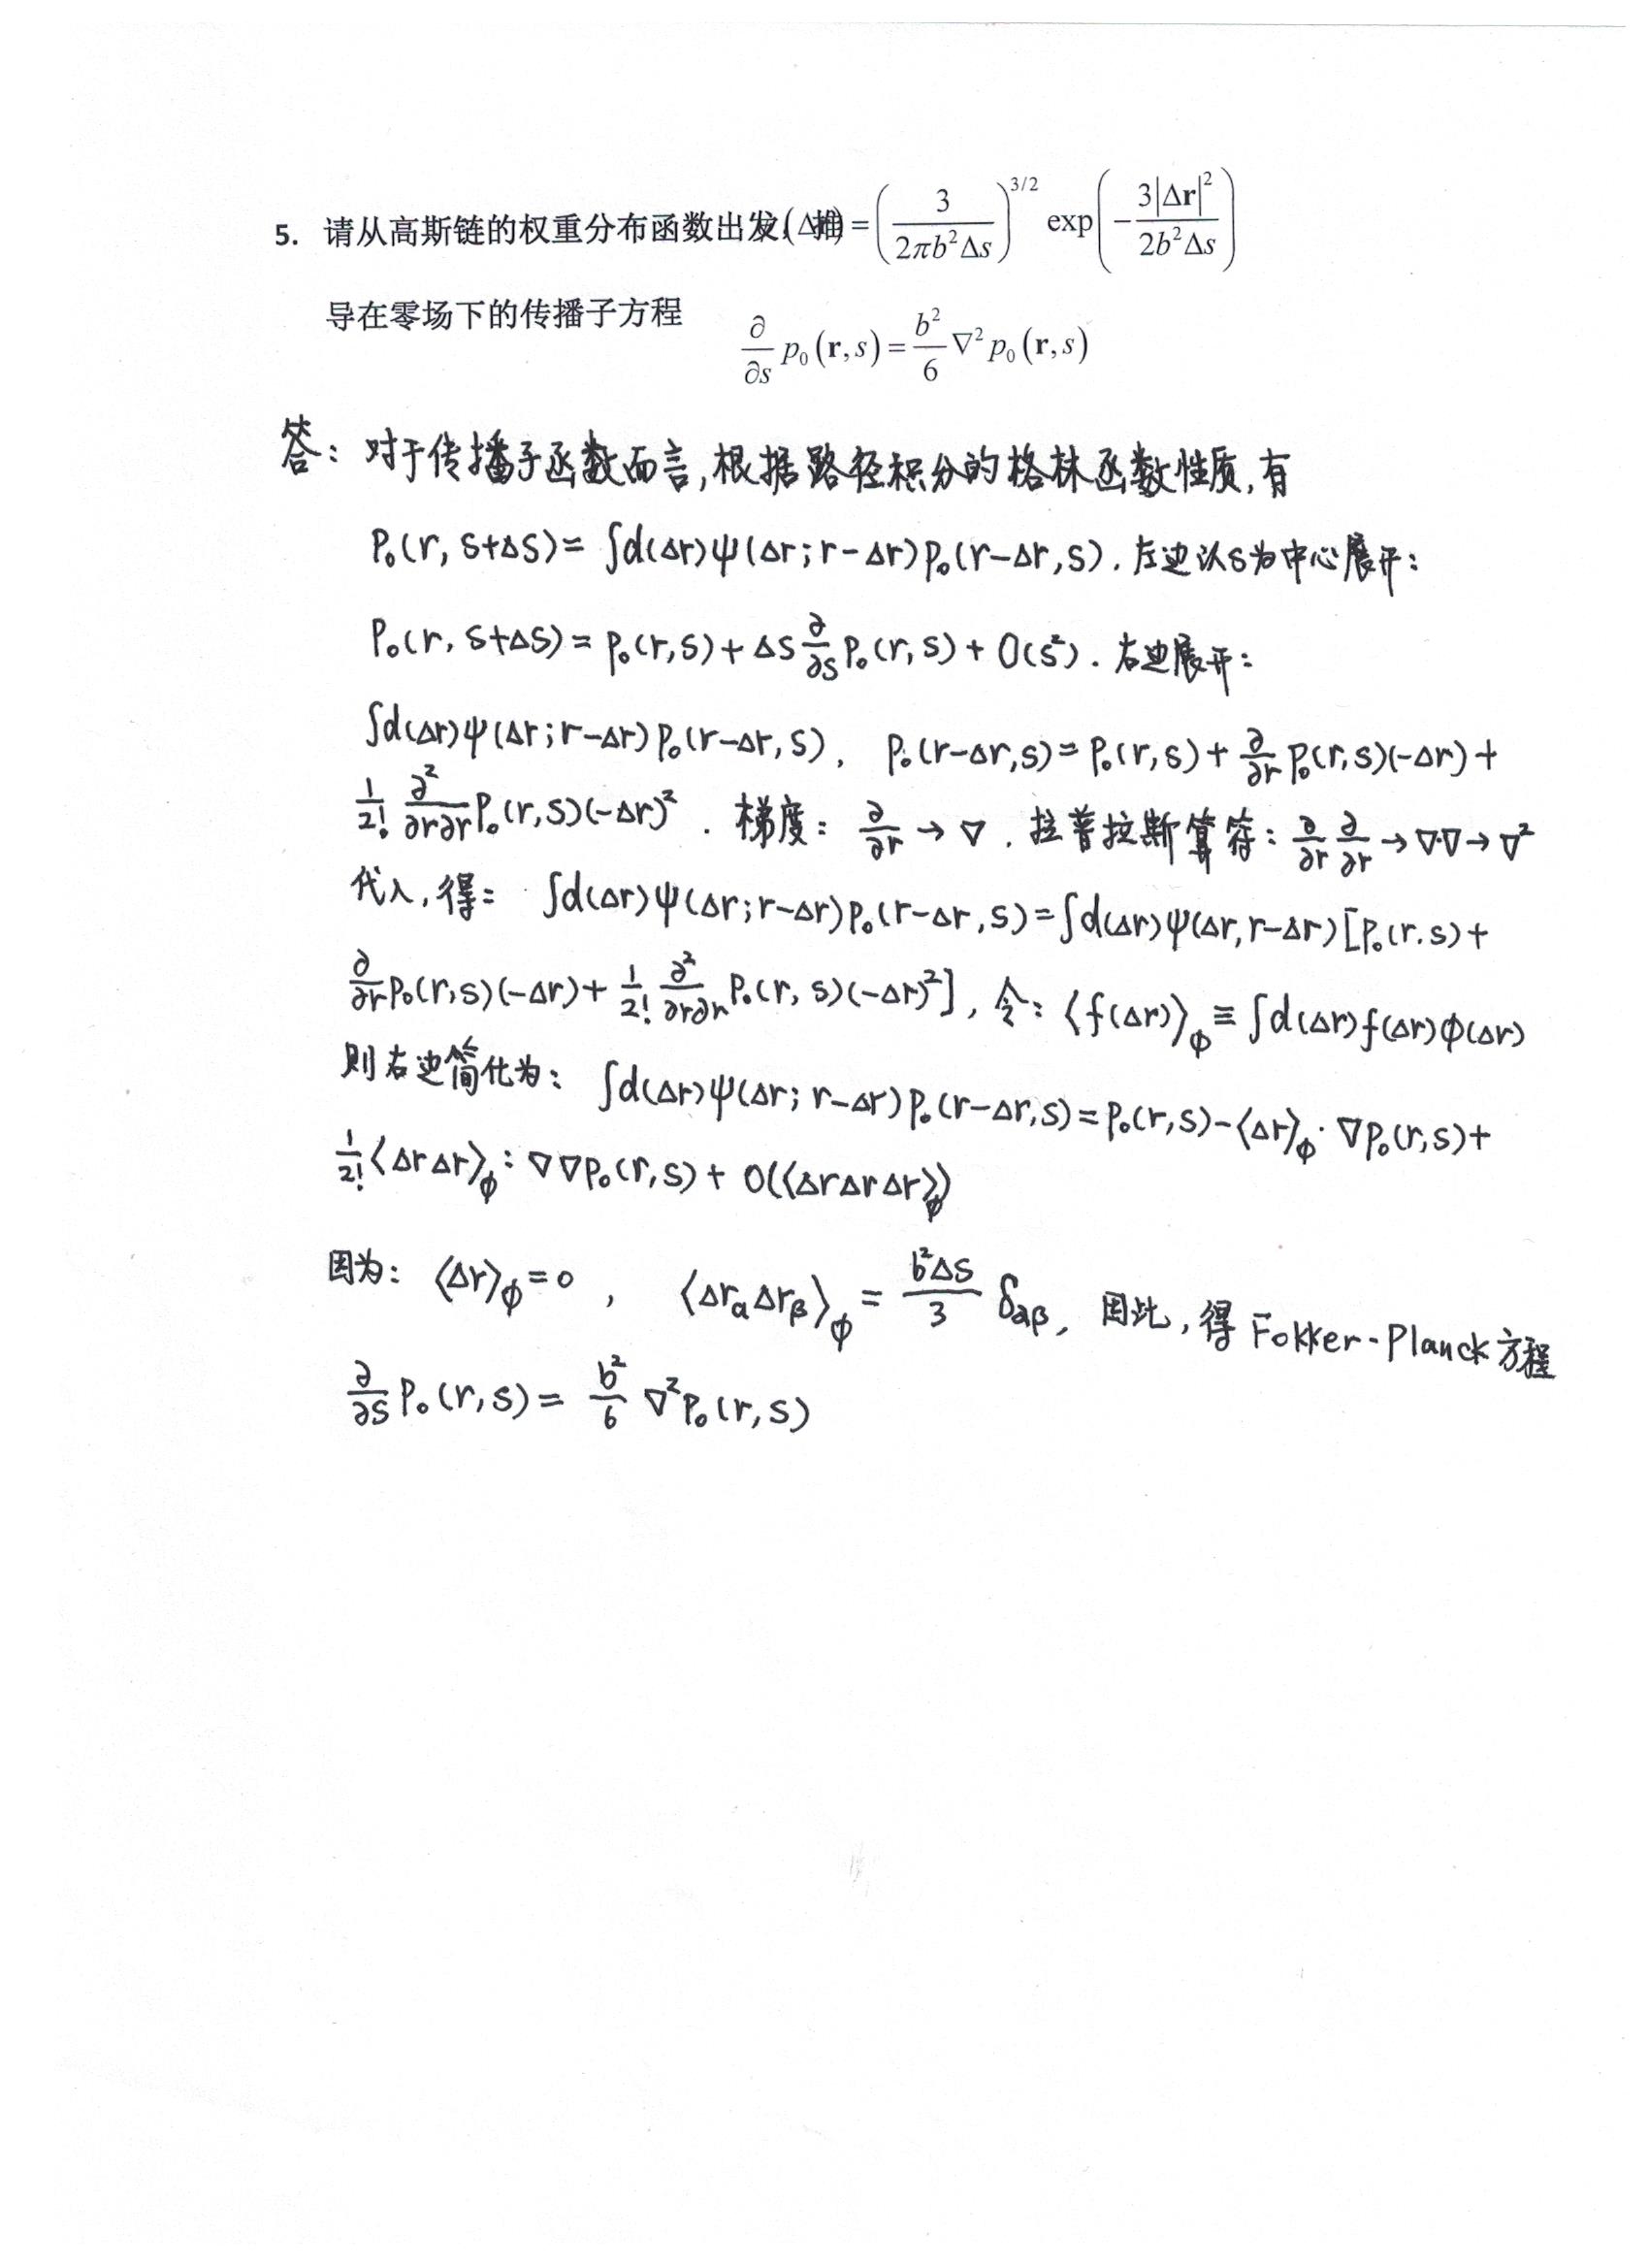 5. 请从高斯链的权重分布函数出发,(Δ推) = (3/(2πb²Δs))^{3/2} exp(−3|Δr|²/(2b²Δs))
导在零场下的传播子方程 ∂/∂s p₀(r,s) = b²/6 ∇² p₀(r,s)
答：对于传播子函数而言,根据路径积分的格林函数性质,有
P₀(r, s+Δs) = ∫d(Δr)ψ(Δr; r−Δr)p₀(r−Δr, s). 左边以s为中心展开：
P₀(r, s+Δs) = p₀(r,s) + Δs ∂/∂s P₀(r,s) + O(s²). 右边展开：
∫d(Δr)ψ(Δr; r−Δr)P₀(r−Δr, s), P₀(r−Δr,s) = P₀(r,s) + ∂/∂r P₀(r,s)(−Δr) +
1/2! ∂²/∂r∂r P₀(r,s)(−Δr)². 梯度：∂/∂r → ∇. 拉普拉斯算符：∂/∂r ∂/∂r → ∇·∇ → ∇²
代入,得： ∫d(Δr)ψ(Δr; r−Δr)p₀(r−Δr, s) = ∫d(Δr)ψ(Δr, r−Δr)[P₀(r.s) +
∂/∂r P₀(r,s)(−Δr) + 1/2! ∂²/∂r∂r P₀(r, s)(−Δr)²], 令：⟨f(Δr)⟩_ϕ ≡ ∫d(Δr)f(Δr)ϕ(Δr)
则右边简化为： ∫d(Δr)ψ(Δr; r−Δr)P₀(r−Δr,s) = P₀(r,s) − ⟨Δr⟩_ϕ · ∇p₀(r,s) +
1/2! ⟨ΔrΔr⟩_ϕ : ∇∇p₀(r,s) + O(⟨ΔrΔrΔr⟩_ϕ)
因为： ⟨Δr⟩_ϕ = 0 , ⟨Δr_αΔr_β⟩_ϕ = b²Δs/3 δ_αβ, 因此,得 Fokker-Planck 方程
∂/∂s P₀(r,s) = b²/6 ∇²P₀(r,s)